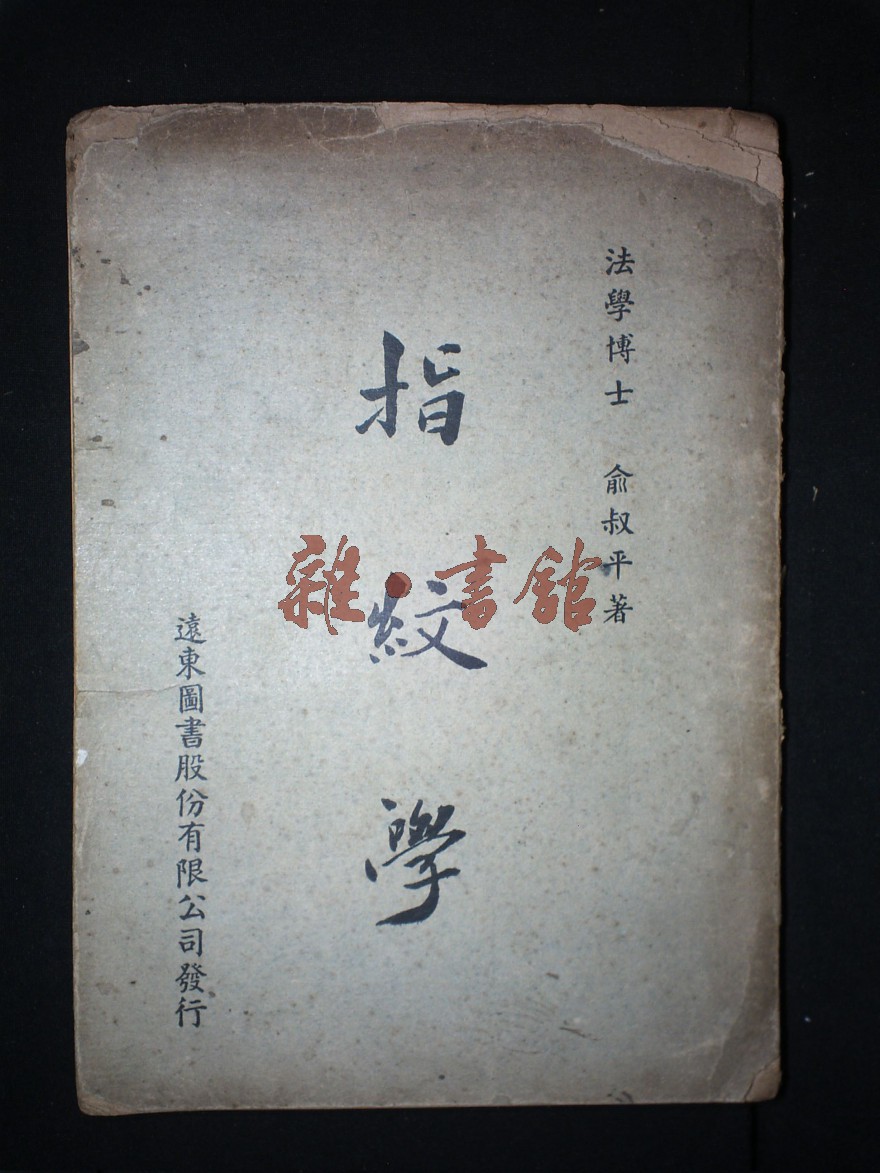 法學博士 俞叔平著
指紋學
遠東圖書股份有限公司發行
雜·書館